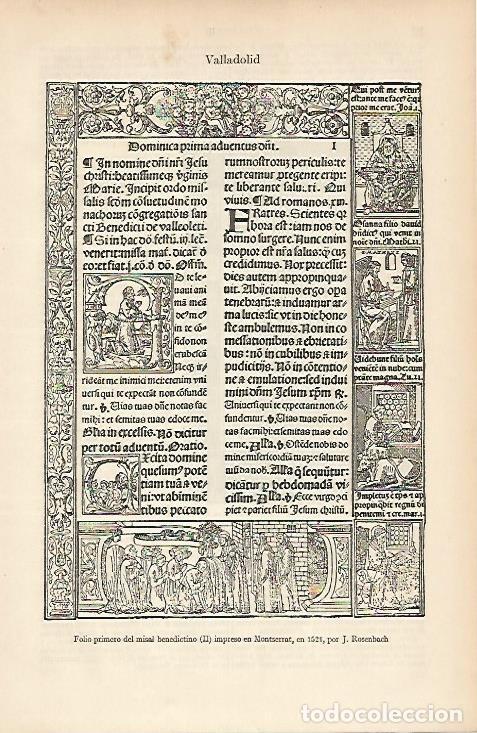 Valladolid
Dominica prima aduentus dñi.
I
¶ In nomine dñi nr̃i Jesu
christi: beatissimeqȝ ṽginis
Marie. Incipit ordo mis-
salis scðm cõsuetudinẽ mo
nachorum cõgregatiõis san
cti Benedicti de valleoleti.
¶ Si in hac dõ festũ
venerit: missa dicat̃
D te le
uaui ani
mã meã
deꝰ meꝰ
in te cõ
fido non
erubescã
Neqȝ ir
rideãt me inimici mei: etenim vni
uersi qui te expectãt non cõfundẽ
tur. Uias tuas dñe notas fac
mihi: et semitas tuas edoce me.
Gl̃ia in excelsis. Nõ dicitur
per totũ aduentũ. Oratio.
Excita domine
quesumꝰ potẽ
tiam tuã & ve-
ni: vt ab iminẽ
tibus peccato
rum nostroruȝ periculis: te
mereamur ꝓtegente eripi:
te liberante saluari. Qui
viuis. ¶ Ad romanos.
FRatres. Scientes qꝛ
hora est: iam nos de
somno surgere. Nunc enim
propior est nr̃a salus: qȝ cuȝ
credidimus. Nox precessit:
dies autem appropinquã
Abijciamus ergo opa
tenebrarũ: & induamur ar
ma lucis: sic vt in die hone-
ste ambulemus. Non in co
messationibus & ebrieta
tibus: nõ in cubilibus & im
pudicitijs. Non in cõtentio-
ne & emulatione: sed indui
mini dñm Jesum xp̃m
Uniuersi qui te expectant non cõ
fundentur dñe. Uias tuas
dñe notas fac mihi: & semitas tuas edo
ce me. Alla. Ostẽde nobis do
mine misericordiã tuaȝ: & salutare
tuum da nobis. Alla qd̃ sequit̃ur:
dicat̃ur p̱ hebdomadã vi
cissim. Alla. Ecce virgo cõci
piet & pariet filiũ Jesum christũ.
Qui post me vẽtur
est: ante me factꝰ ẽ: qꝛ
prior me erat. Joã.1.
Osanna filio dauid
bñdictꝰ qui venit in
noĩe dñi. Math.21.
Uidebunt filiũ hoĩs
veniẽtẽ in nube: cum
ptãte magna. Lu.21.
Impletũ est tp̃s & ap
propinqbit regnũ dei
penitemi & cre. mar.1.
Folio primero del misal benedictino (II) impreso en Montserrat, en 1521, por J. Rosenbach
todocoleccion